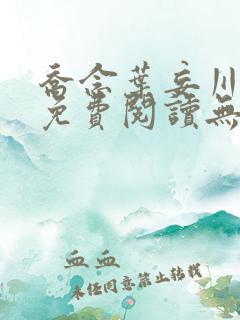 喬念葉妄川
免費閱讀無
血血
未经同意禁止转载